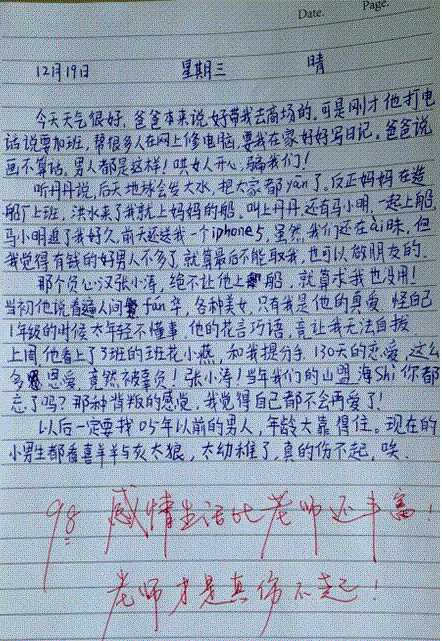 Date.
Page.
12月19日 星期三 晴
今天天气很好,爸爸本来说好带我去商场的,可是刚才他打电
话说要加班,帮很多人在网上修电脑,要我在家好好写日记。爸爸说
画不算话,男人都是这样!哄女人开心,骗我们!
听丹丹说,后天地球会发大水,把大家都yān了。反正妈妈在造
船厂上班,洪水来了我就上妈妈的船。叫上丹丹,还有马小明,一起上船,
马小明追了我好久,前天还送我一个iphone5,虽然我们还在ai昧,但
我觉得有钱的好男人不多了,就算最后不能取我,也可以做朋友的。
那个负心汉张小涛,绝不让他上船,就算求我也没用!
当初他说看遍人间fán华,各种美女,只有我是他的真爱,怪自己
1年级的时候太年轻不懂事,他的花言巧语,竟让我无法自拔
上周他看上了3班的班花小燕,和我提分手,130天的恋爱,这么
多恩爱,竟然被辜负!张小涛!当年我们的山盟海Shi你都
忘了吗?那种背叛的感觉,我觉得自己都不会再爱了!
以后一定要找05年以前的男人,年龄大靠得住。现在的
小男生都看喜羊羊与灰太狼,太幼稚了,真的伤不起,唉.
98 感情生活比老师还丰富!
老师才是真伤不起!